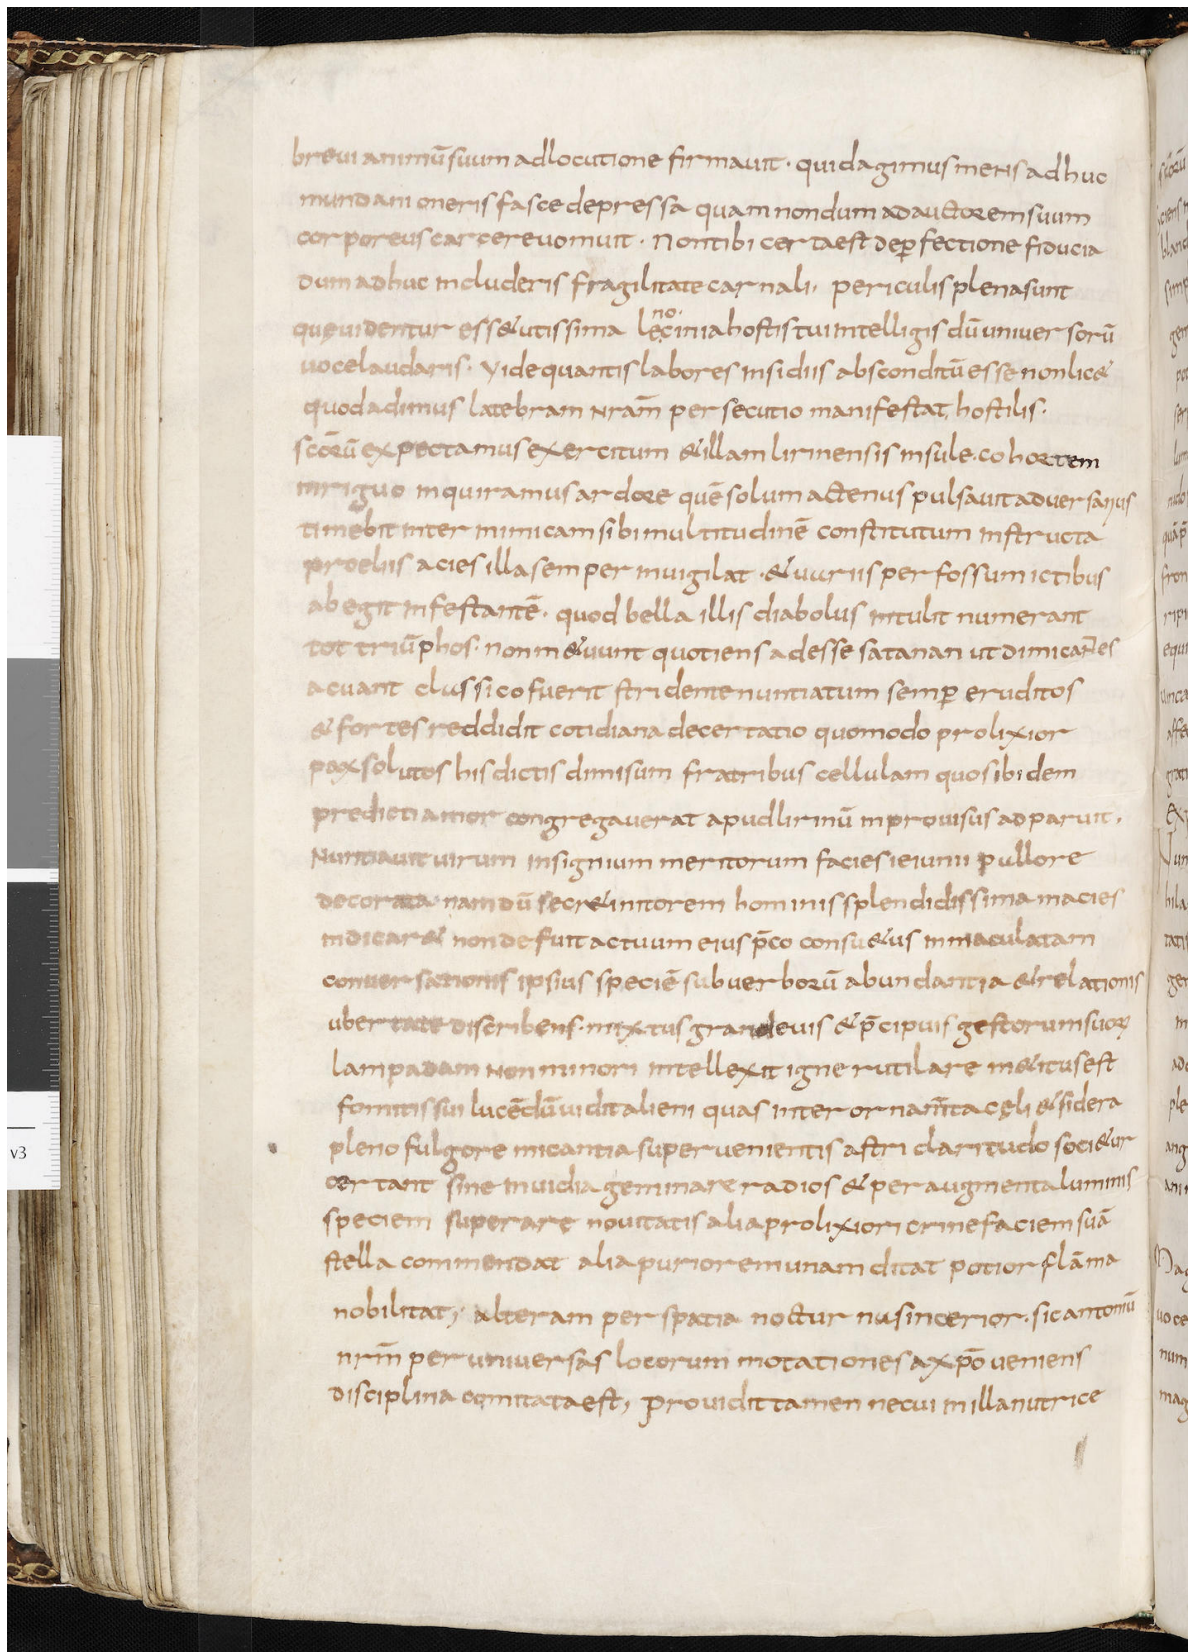 breui animū suum adlocutione firmauit · quid agimus mens adhuc
mundani oneris fasce depressa quam nondum ad auctorem suum
corporeus carcer euomuit · Non tibi certa est de ꝑfectione fiducia
dum adhuc includeris fragilitate carnali · periculis plena sunt
quę uidentur esse & utissima lęcinia hostis tui intelligis dū uniuersorū
no
uoce laudaris · Vide quantis labores insidiis absconditū esse non lic&
quod adimus latebram nram̄ persecutio manifestat hostilis ·
scōrū expectamus exercitum & illam lirinensis insule · cohortem
inriguo inquiramus ardore quē solum actenus pulsauit aduersarius
timebit inter inimicam sibi multitudinē constitutum instructa
proeliis acies illa semper inuigilat · & uuriis perfossum ictibus
abegit infestantē · quod bella illis diabolus intulit numerant
tot triūphos · non m&uunt quotiens adesse satanan ut dimicantes
acuant clussico fuerit stridente nuntiatum semꝑ eruditos
& fortes reddidit cotidiana decertatio quomodo prolixior
pax solutos his dictis dimisum fratribus cellulam quos ibidem
predicti amor congregauerat apud lirinū inprouisus adparuit ,
Nuntiauit uirum insignium meritorum facies ieiunii pullore
decorata · nam dū secr& initorem hominis splendidissima macies
indicar& non defuit actuum eius p̄co consu&us inmaculatam
conuersationis ipsius speciē sub uerborū abundantia & relationis
ubertate discribens · mixtus grandeuis & p̄cipuis gestorum suorꝝ
lampadam non minori intellexit igne rutilare in&itus est
fomitis sui lucēdū uidit alieni quas inter ornam̄ta cęli & sidera
pleno fulgore micantia superuenientis astri claritudo soci&ur
certant sine inuidia geminare radios & per augmenta luminis
speciem superare nouitatis alia prolixiori crine faciem suā
stella commendat alia puriorem unam ditat potior flāma
nobilitat , alteram per spatia noctur nu sincerior · sic antoniū
nrm̄ per uniuersas locorum motationes a xp̄o ueniens
disciplina comitata est , prouidit tamen ne cui in illa nutrice